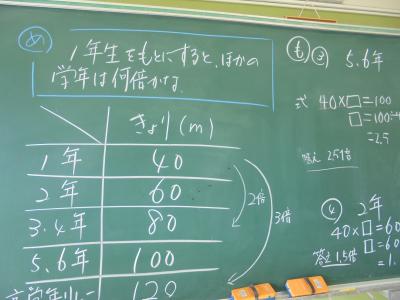 め
1年生をもとにすると、ほかの
学年は何倍かな。
きょり(m)
1年 40
2年 60
3.4年 80
5.6年 100
120
2倍
3倍
も ③ 5.6年
式 40×□=100
□=100÷4
=2.5
答え 2.5倍
④ 2年
40×□=60
□=60
答え 1.5倍 =1.